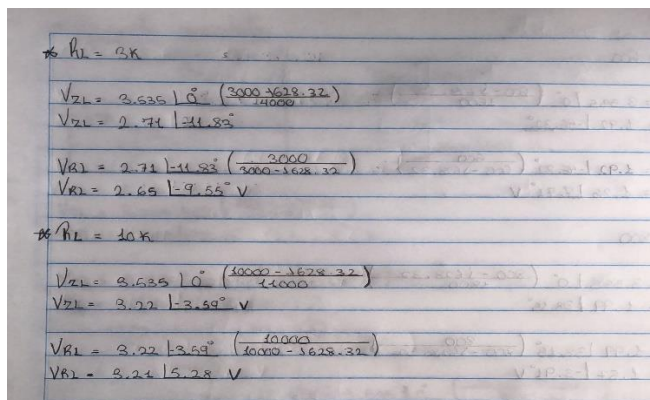 * RL = 3K
VZL = 3.535 |0° (3000-j628.32 / 4000)
VZL = 2.71 |-11.83°
VRL = 2.71 |-11.83° (3000 / 3000-j628.32)
VRL = 2.65 |-9.55° V
* RL = 10K
VZL = 3.535 |0° (10000 - j628.32 / 11000)
VZL = 3.22 |-3.59° V
VRL = 3.22 |-3.59° (10000 / 10000 - j628.32)
VRL = 3.21 |5.28 V